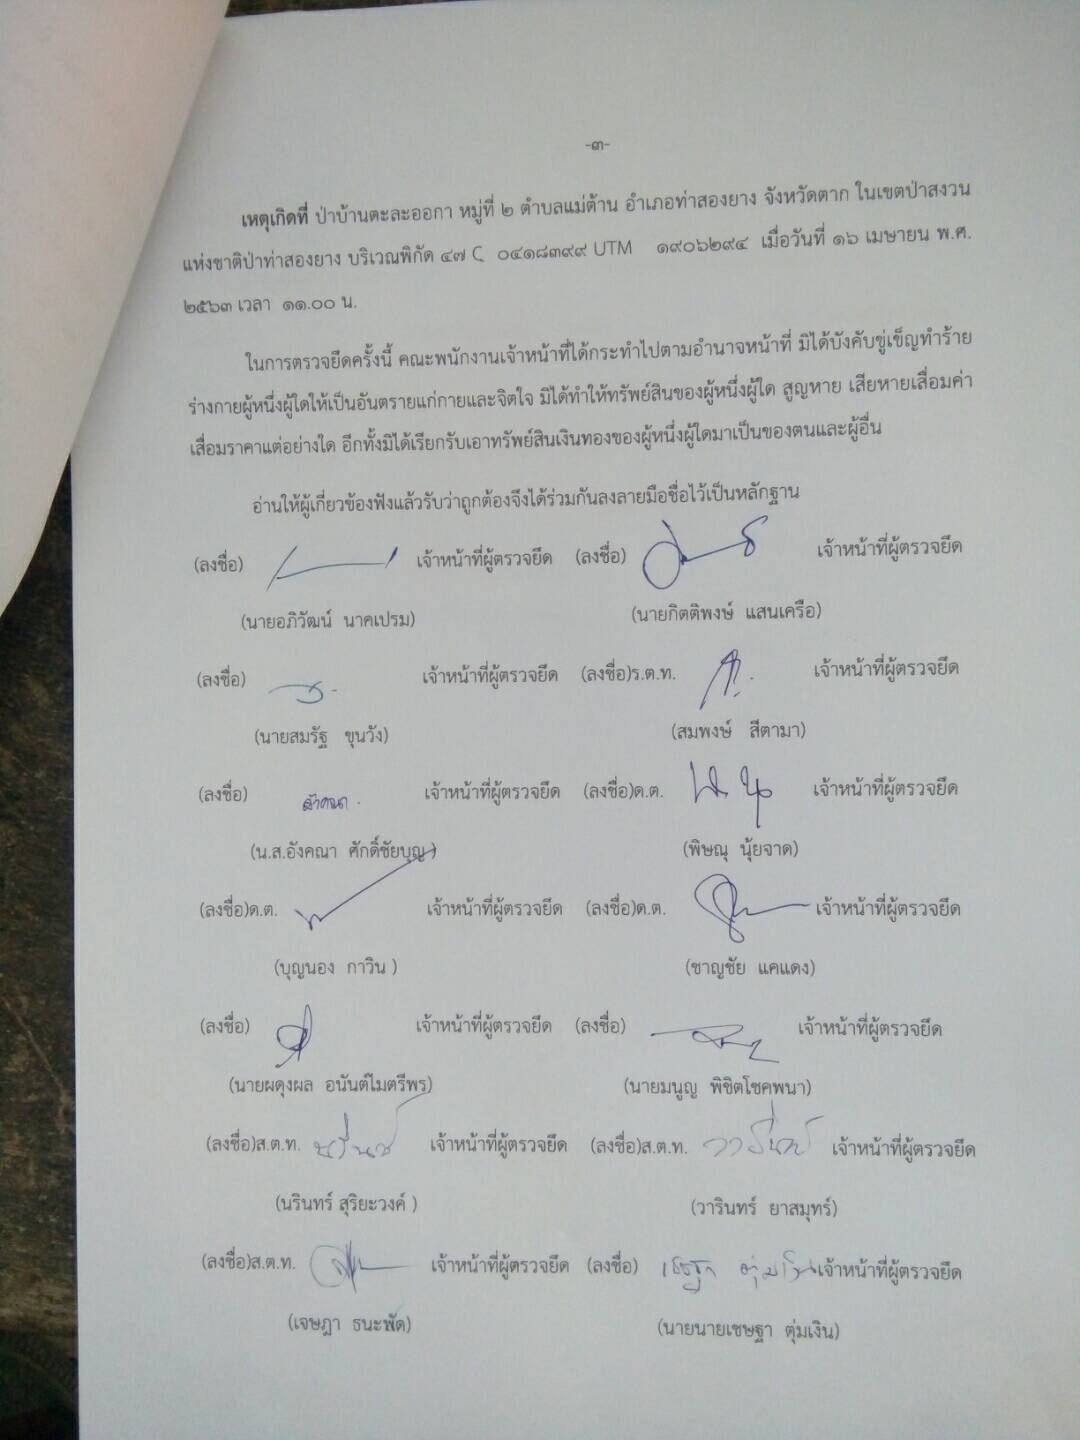 -๓-
เหตุเกิดที่ ป่าบ้านตะละออกา หมู่ที่ ๒ ตำบลแม่ต้าน อำเภอท่าสองยาง จังหวัดตาก ในเขตป่าสงวน
แห่งชาติป่าท่าสองยาง บริเวณพิกัด ๔๗ Q ๐๔๑๘๓๙๙ UTM ๑๙๐๖๒๙๔ เมื่อวันที่ ๑๖ เมษายน พ.ศ.
๒๕๖๓ เวลา ๑๑.๐๐ น.
ในการตรวจยึดครั้งนี้ คณะพนักงานเจ้าหน้าที่ได้กระทำไปตามอำนาจหน้าที่ มิได้บังคับขู่เข็ญทำร้าย
ร่างกายผู้หนึ่งผู้ใดให้เป็นอันตรายแก่กายและจิตใจ มิได้ทำให้ทรัพย์สินของผู้หนึ่งผู้ใด สูญหาย เสียหายเสื่อมค่า
เสื่อมราคาแต่อย่างใด อีกทั้งมิได้เรียกรับเอาทรัพย์สินเงินทองของผู้หนึ่งผู้ใดมาเป็นของตนและผู้อื่น
อ่านให้ผู้เกี่ยวข้องฟังแล้วรับว่าถูกต้องจึงได้ร่วมกันลงลายมือชื่อไว้เป็นหลักฐาน
(ลงชื่อ) เจ้าหน้าที่ผู้ตรวจยึด (ลงชื่อ) เจ้าหน้าที่ผู้ตรวจยึด
(นายอภิวัฒน์ นาคเปรม) (นายกิตติพงษ์ แสนเครือ)
(ลงชื่อ) เจ้าหน้าที่ผู้ตรวจยึด (ลงชื่อ)ร.ต.ท. เจ้าหน้าที่ผู้ตรวจยึด
(นายสมรัฐ ขุนวัง) (สมพงษ์ สีตามา)
(ลงชื่อ) เจ้าหน้าที่ผู้ตรวจยึด (ลงชื่อ)ด.ต. เจ้าหน้าที่ผู้ตรวจยึด
(น.ส.อังคณา ศักดิ์ชัยบุญ) (พิษณุ นุ้ยจาด)
(ลงชื่อ)ด.ต. เจ้าหน้าที่ผู้ตรวจยึด (ลงชื่อ)ด.ต. เจ้าหน้าที่ผู้ตรวจยึด
(บุญนอง กาวิน ) (ชาญชัย แคแดง)
(ลงชื่อ) เจ้าหน้าที่ผู้ตรวจยึด (ลงชื่อ) เจ้าหน้าที่ผู้ตรวจยึด
(นายผดุงผล อนันต์ไมตรีพร) (นายมนูญ พิชิตโชคพนา)
(ลงชื่อ)ส.ต.ท. นรินทร์ เจ้าหน้าที่ผู้ตรวจยึด (ลงชื่อ)ส.ต.ท. วารินทร์ เจ้าหน้าที่ผู้ตรวจยึด
(นรินทร์ สุริยะวงค์ ) (วารินทร์ ยาสมุทร์)
(ลงชื่อ)ส.ต.ท. เจ้าหน้าที่ผู้ตรวจยึด (ลงชื่อ) เชษฐา ตุ่มเงิน เจ้าหน้าที่ผู้ตรวจยึด
(เจษฎา ธนะพัด) (นายนายเชษฐา ตุ่มเงิน)